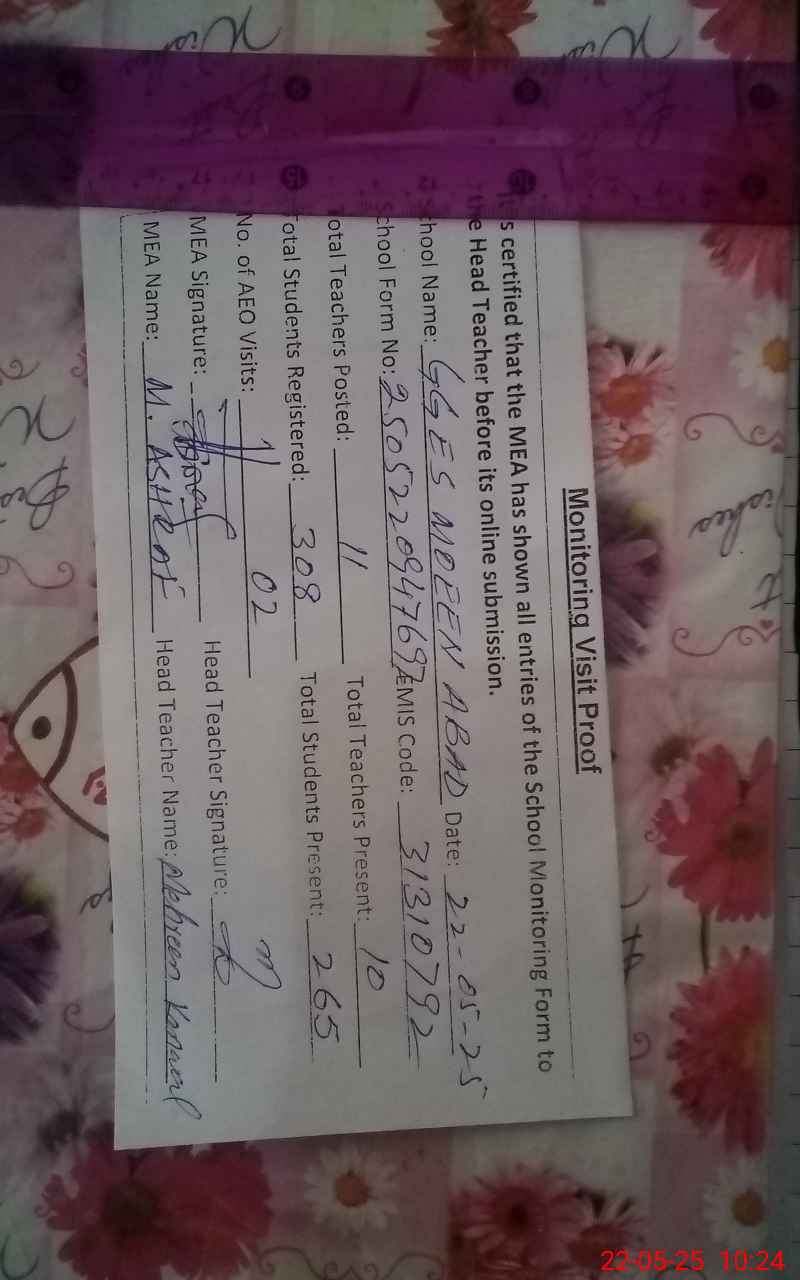 Monitoring Visit Proof
It is certified that the MEA has shown all entries of the School Monitoring Form to
the Head Teacher before its online submission.
School Name: GGES MOEEN ABAD Date: 22-05-25
School Form No: 2505220947697 EMIS Code: 31310792
Total Teachers Posted: 11 Total Teachers Present: 10
Total Students Registered: 308 Total Students Present: 265
No. of AEO Visits: 02
MEA Signature: Head Teacher Signature:
MEA Name: M. ASHRAF Head Teacher Name: Mehreen Kanwal
22-05-25 10:24